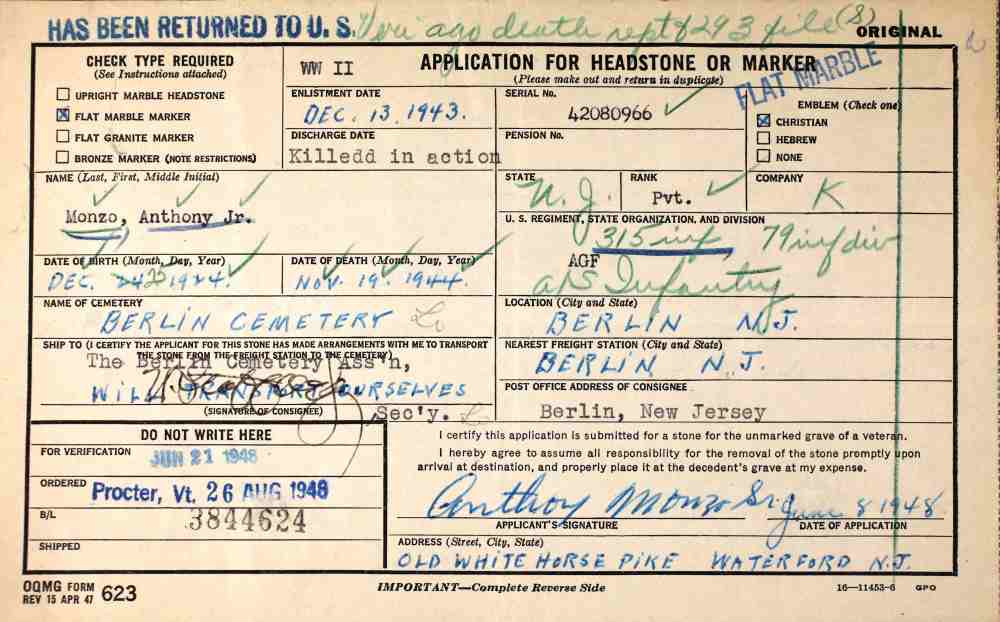 HAS BEEN RETURNED TO U. S. Veri ago death rept & 293 file (S) ORIGINAL
CHECK TYPE REQUIRED
(See Instructions attached)
UPRIGHT MARBLE HEADSTONE
FLAT MARBLE MARKER
FLAT GRANITE MARKER
BRONZE MARKER (NOTE RESTRICTIONS)
WW II
APPLICATION FOR HEADSTONE OR MARKER
(Please make out and return in duplicate)
FLAT MARBLE
ENLISTMENT DATE
DEC. 13. 1943.
SERIAL No.
42080966
EMBLEM (Check one)
CHRISTIAN
HEBREW
NONE
DISCHARGE DATE
Killedd in action
PENSION No.
NAME (Last, First, Middle Initial)
Monzo, Anthony Jr.
STATE
N. J.
RANK
Pvt.
COMPANY
K
U. S. REGIMENT, STATE ORGANIZATION, AND DIVISION
315 inf 79 inf div
AGF
a/s Infantry
DATE OF BIRTH (Month, Day, Year)
DEC. 24 25 1924.
DATE OF DEATH (Month, Day, Year)
NOV. 19. 1944.
NAME OF CEMETERY
BERLIN CEMETERY
LOCATION (City and State)
BERLIN N.J.
SHIP TO (I CERTIFY THE APPLICANT FOR THIS STONE HAS MADE ARRANGEMENTS WITH ME TO TRANSPORT
THE STONE FROM THE FREIGHT STATION TO THE CEMETERY)
The Berlin Cemetery Ass'n,
WILL TRANSPORT OURSELVES
(SIGNATURE OF CONSIGNEE)
Sec'y.
NEAREST FREIGHT STATION (City and State)
BERLIN, N. J.
POST OFFICE ADDRESS OF CONSIGNEE
Berlin, New Jersey
DO NOT WRITE HERE
FOR VERIFICATION
JUN 21 1948
ORDERED
Procter, Vt. 26 AUG 1948
B/L
3844624
SHIPPED
I certify this application is submitted for a stone for the unmarked grave of a veteran.
I hereby agree to assume all responsibility for the removal of the stone promptly upon
arrival at destination, and properly place it at the decedent's grave at my expense.
Anthoy Monzo Sr. June 8 1948
APPLICANT'S SIGNATURE
DATE OF APPLICATION
ADDRESS (Street, City, State)
OLD WHITE HORSE PIKE WATERFORD N.J.
OQMG FORM
REV 15 APR 47 623
IMPORTANT—Complete Reverse Side
16—11453-6 GPO